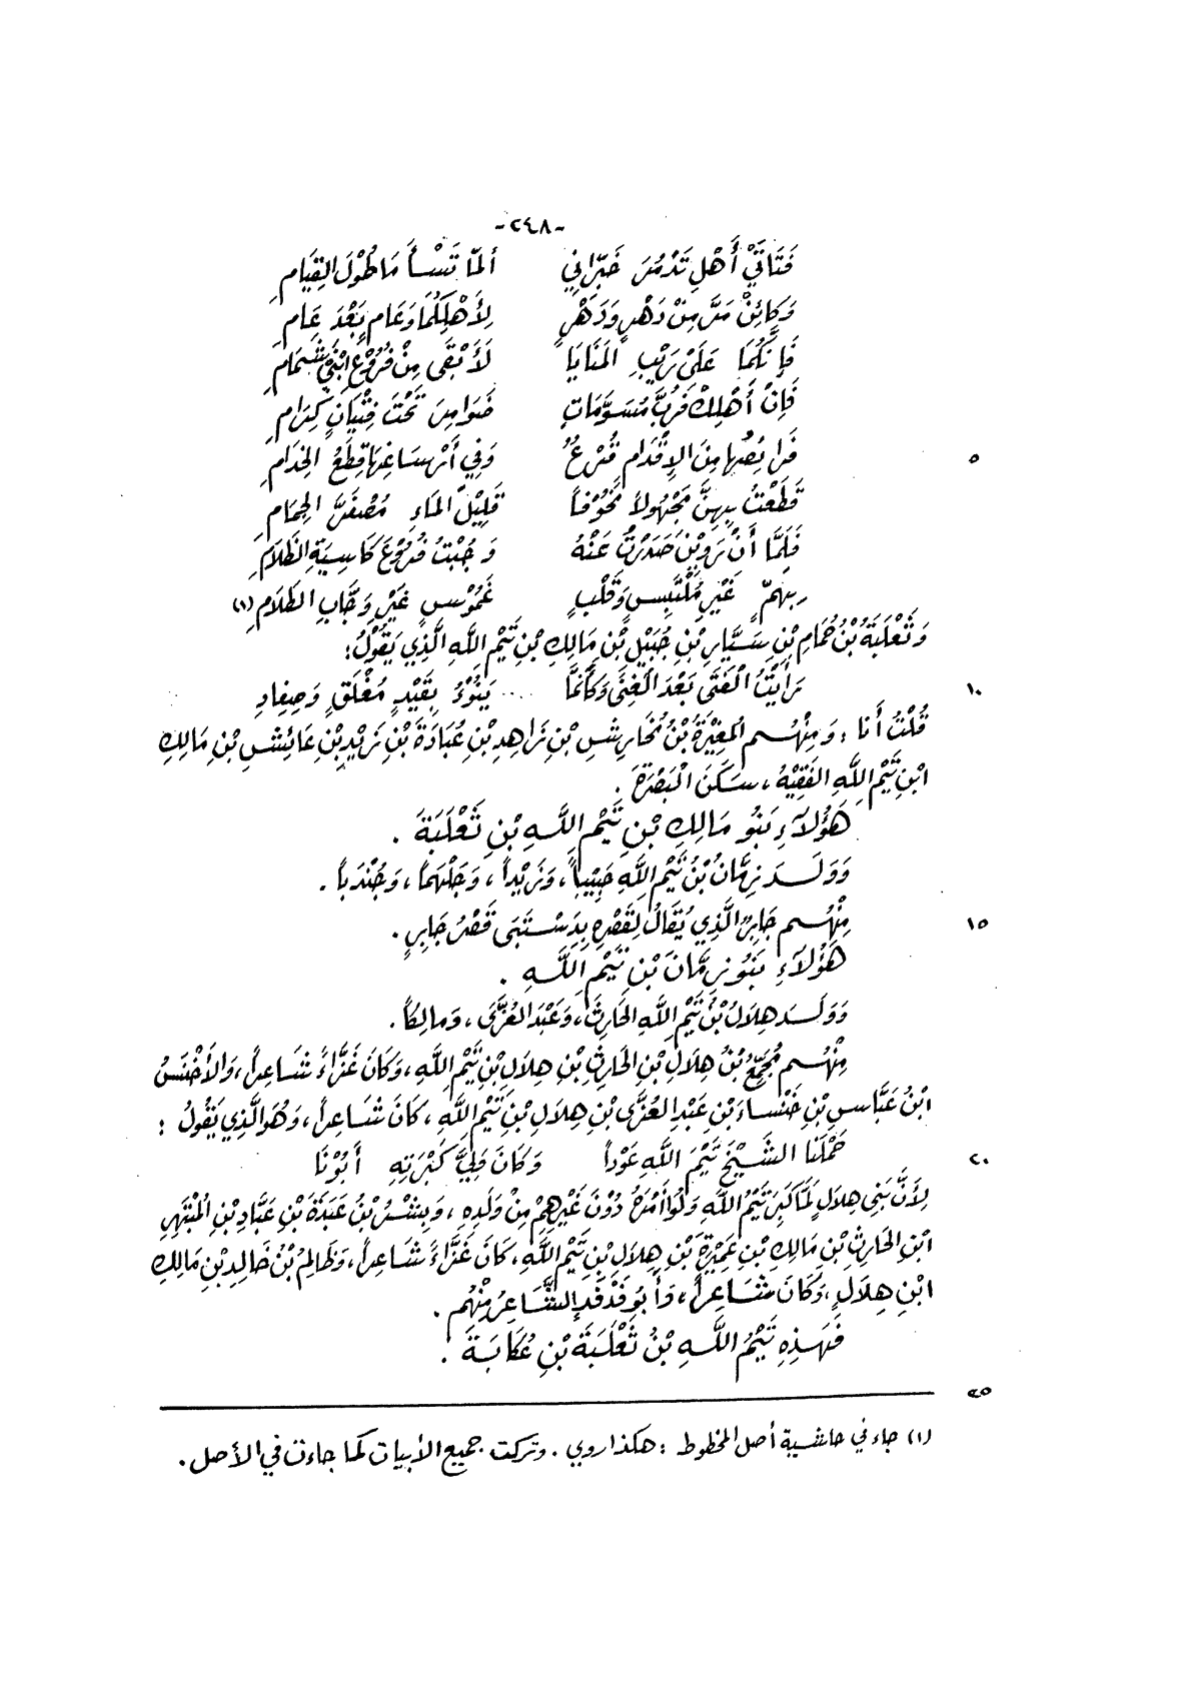 -٢٤٨-
فَتَاتَيْ أَهْلِ تَدْمُرَ خَبِّرَانِي أَلَمَّا تَسْأَمَا طُوْلَ القِيَامِ
وَكَائِنْ مَرَّ مِنْ دَهْرٍ وَدَهْرٍ لِأَهْلِكُمَا وَعَامٍ بَعْدَ عَامِ
فَإِنَّكُمَا عَلَى رَيْبِ المَنَايَا لَأَبْقَى مِنْ فُرُوْعِ ابْنَيْ شَمَامِ
فَإِنْ أَهْلِكْ فَرُبَّ مُسَوَّمَاتٍ ضَوَامِرَ تَحْتَ فِتْيَانٍ كِرَامِ
فَرَائِصُهَا مِنَ الإِقْدَامِ قُرْعٌ وَفِي أَرْسَاغِهَا قِطَعُ الخِدَامِ ٥
قَطَعْتُ بِهِنَّ مَجْهُولاً مَخُوْفاً قَلِيْلَ المَاءِ مُصْفَرَّ الجِمَامِ
فَلَمَّا أَنْ رَوِيْنَ صَدَرْتُ عَنْهُ وَجُبْتُ فُرُوْعَ كَاسِيَةِ الظَلَامِ
بِهَمٍّ غَيْرِ مُلْتَبِسٍ وَقَلْبٍ غَمُوْسٍ غَيْرِ وَجَّابِ الظَلَامِ (١)
وَثَعْلَبَةُ بْنُ حُمَامِ بْنِ سَيَّارِ بْنِ جُبَيْلِ بْنِ مَالِكِ بْنِ تَيْمِ اللَّهِ الَّذِي يَقُوْلُ:
رَأَيْتُ الْفَتَى بَعْدَ الْغِنَى وَكَأَنَّمَا .... يَنُوْءُ بِقَيْدٍ مُغْلَقٍ وَصِفَادِ ١٠
قُلْتُ أَنَا: وَمِنْهُم الْمُغِيْرَةُ بْنُ مُخَارِشِ بْنِ زَاهِدِ بْنِ عُبَادَةَ بْنِ زَيْدِ بْنِ عَائِشِ بْنِ مَالِكِ
ابْنِ تَيْمِ اللَّهِ الفَقِيْهُ، سَكَنَ الْبَصْرَةَ.
هَؤُلَاءِ بَنُو مَالِكِ بْنِ تَيْمِ اللَّهِ بْنِ ثَعْلَبَةَ.
وَوَلَدَ زِمَّانُ بْنُ تَيْمِ اللَّهِ حَبِيْباً، وَزَيْداً، وَجَلْهَماً، وَجُنْدَباً.
مِنْهُم جَابِرٌ الَّذِي يُقَالُ لِقَصْرِهِ بِدَسْتَبَى قَصْرُ جَابِرٍ. ١٥
هَؤُلَاءِ بَنُو زِمَّانَ بْنِ تَيْمِ اللَّهِ.
وَوَلَدَ هِلَالُ بْنُ تَيْمِ اللَّهِ الحَارِثَ، وَعَبْدَ العُزَّى، وَمالِكاً.
مِنْهُم مُجَمِّعُ بْنُ هِلَالِ بْنِ الحَارِثِ بْنِ هِلَالِ بْنِ تَيْمِ اللَّهِ، وَكَانَ غَزَّاءً شَاعِراً، وَالأَخْنَسُ
ابْنُ عَبَّاسِ بْنِ خَنْسَاءَ بْنِ عَبْدِ العُزَّى بْنِ هِلَالِ بْنِ تَيْمِ اللَّهِ، كَانَ شَاعِراً، وَهُوَ الَّذِي يَقُولُ:
حَمَلْنَا الشَّيْخَ تَيْمَ اللَّهِ عَوْداً وَكَانَ وَلِيَّ كَبْرَتِهِ أَبُوْنَا ٢٠
لِأَنَّ بَنِي هِلَالٍ لَمَّا كَبِرَ تَيْمُ اللَّهِ وَلُوا أَمْرَهُ دُوْنَ غَيْرِهِمْ مِنْ وَلَدِهِ، وَبِشْرُ بْنُ عَبَدَةَ بْنِ عَبَّادِ بْنِ الْمُبْتَهِرِ
ابْنِ الحَارِثِ بْنِ مَالِكِ بْنِ عَمِيْرَةَ بْنِ هِلَالِ بْنِ تَيْمِ اللَّهِ، كَانَ غَزَّاءً شَاعِراً، وَظَالِمُ بْنُ خَالِدِ بْنِ مَالِكِ
ابْنِ هِلَالٍ، وَكَانَ شَاعِراً، وَأَبُو فَدْفَدٍ الشَّاعِرُ مِنْهُم.
فَهَذِهِ تَيْمُ اللَّهِ بْنُ ثَعْلَبَةَ بْنِ عُكَابَةَ.
٢٥
(١) جاء في حاشية أصل المخطوط: هكذا روي. وتركت جميع الأبيات كما جاءت في الأصل.